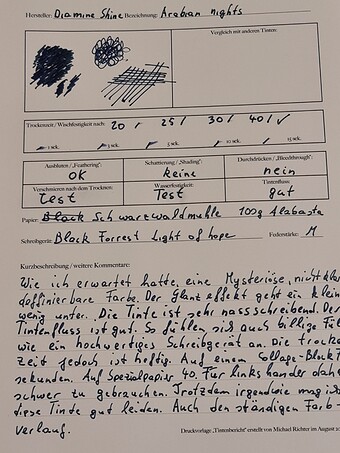 Hersteller: Diamine Shine Bezeichnung: Arabian nights
Vergleich mit anderen Tinten:
Trockenzeit / Wischfestigkeit nach: 20 / 25/ 30/ 40/✓
1 sek. 5 sek. 5 sek. 10 sek. 15 sek.
Ausbluten / „Feathering": Schattierung / „Shading": Durchdrücken / „Bleedthrough":
OK keine nein
Verschmieren nach dem Trocknen: Wasserfestigkeit: Tintenfluss:
Test Test gut
Papier: Black Schwarzwaldmühle 100g Alabasta
Schreibgerät: Black Forrest Light of hope Federstärke: M
Kurzbeschreibung / weitere Kommentare:
Wie ich erwartet hatte, eine Mysteriöse, nicht klar
deffinierbare Farbe. Der Glanzeffekt geht ein klein
wenig unter. Die Tinte ist sehr nassschreibend. Der
Tintenfluss ist gut. So fühlen sich auch billige Fül
wie ein hochwertiges Schreibgerät an. Die trocke
zeit jedoch ist heftig. Auf einem Collage-Block
sekunden. Auf Spezialpapier 40. Für links hander dah
schwer zu gebrauchen. Trotzdem irgendwie mag ich
diese Tinte gut leiden. Auch den ständigen Farb-
verlauf.
Druckvorlage „Tintenbericht" erstellt von Michael Richter im August 20